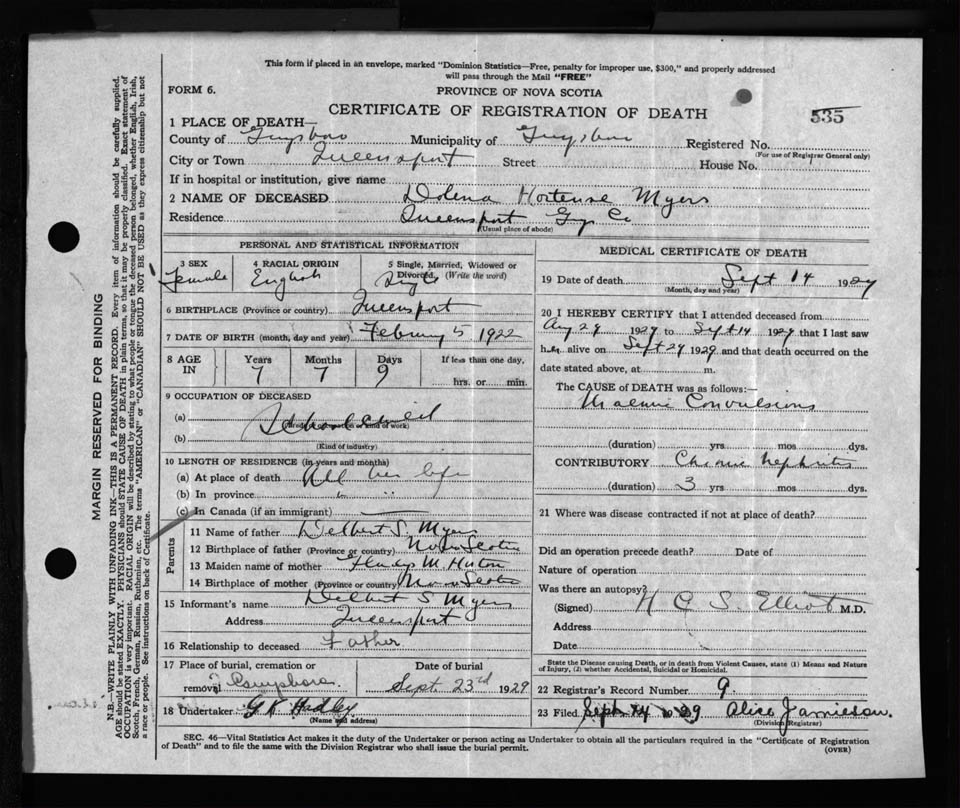 This form if placed in an envelope, marked "Dominion Statistics—Free, penalty for improper use, $300," and properly addressed
will pass through the Mail "FREE"
FORM 6.
PROVINCE OF NOVA SCOTIA
CERTIFICATE OF REGISTRATION OF DEATH
535
1 PLACE OF DEATH—
County of Guysboro Municipality of Guysboro Registered No.
(For use of Registrar General only)
City or Town Queensport Street House No.
If in hospital or institution, give name
2 NAME OF DECEASED Dolena Hortense Myers
Residence Queensport Guy Co
(Usual place of abode)
PERSONAL AND STATISTICAL INFORMATION
3 SEX 4 RACIAL ORIGIN 5 Single, Married, Widowed or Divorced. (Write the word)
Female English Single
6 BIRTHPLACE (Province or country) Queensport
7 DATE OF BIRTH (month, day and year) February 5 1922
8 AGE IN Years Months Days If less than one day,
7 7 9 hrs. or min.
9 OCCUPATION OF DECEASED
(a) School child
(b)
(Kind of industry)
10 LENGTH OF RESIDENCE (in years and months)
(a) At place of death All her life
(b) In province " "
(c) In Canada (if an immigrant)
Parents
11 Name of father Delbert S. Myers
12 Birthplace of father (Province or country) Nova Scotia
13 Maiden name of mother Gladys M.
14 Birthplace of mother (Province or country) Nova Scotia
15 Informant's name Delbert S Myers
Address Queensport
16 Relationship to deceased Father
17 Place of burial, cremation or removal Date of burial
Guysboro Sept. 23rd 1929
18 Undertaker G K Hadley
(Name and address)
MEDICAL CERTIFICATE OF DEATH
19 Date of death Sept 14 1929
(Month, day and year)
20 I HEREBY CERTIFY that I attended deceased from
Aug 29 1929 to Sept 14 1929 that I last saw
her alive on Sept 24 1929 and that death occurred on the
date stated above, at m.
The CAUSE OF DEATH was as follows:—
Convulsions
(duration) yrs mos dys.
CONTRIBUTORY Chronic Nephritis
(duration) 3 yrs. mos. dys.
21 Where was disease contracted if not at place of death?
Did an operation precede death? Date of
Nature of operation
Was there an autopsy?
(Signed) H C S. Elliot M.D.
Address
Date
State the Disease causing Death, or in death from Violent Causes, state (1) Means and Nature
of Injury, (2) whether Accidental, Suicidal or Homicidal.
22 Registrar's Record Number 9
23 Filed Sept 24 1929 Alice Jamieson.
(Division Registrar)
SEC. 46—Vital Statistics Act makes it the duty of the Undertaker or person acting as Undertaker to obtain all the particulars required in the "Certificate of Registration
of Death" and to file the same with the Division Registrar who shall issue the burial permit.
(OVER)
MARGIN RESERVED FOR BINDING
N.B.—WRITE PLAINLY WITH UNFADING INK—THIS IS A PERMANENT RECORD. Every item of information should be carefully supplied.
AGE should be stated EXACTLY. PHYSICIANS should STATE CAUSE OF DEATH in plain terms, so that it may be properly classified. Exact statement of
OCCUPATION is very important. RACIAL ORIGIN will be described by stating to what people or tongue the deceased person belonged, whether English, Irish,
Scotch, French, German, Russian, Ruthenian, etc. The terms "AMERICAN" or "CANADIAN" SHOULD NOT BE USED as they express citizenship but not
a race or people. See instructions on back of Certificate.